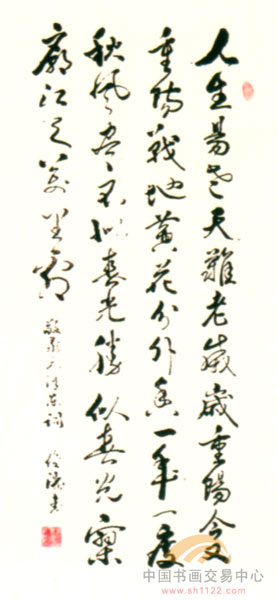 人生易老天難老歲歲重陽今又
重陽戰地黄花分外香一年一度
秋風勁不似春光勝似春光寥
廓江天萬里霜
敬录毛泽东词 書
中国书画交易中心
www.sh1122.com